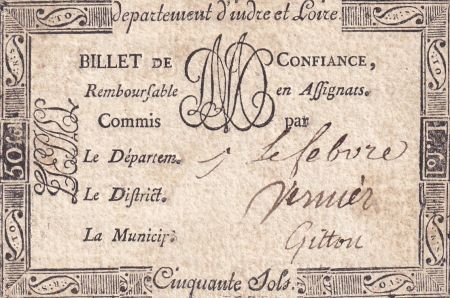 departement d'indre et Loire.
BILLET DE CONFIANCE,
Remboursable en Assignats.
Commis par
Le Départem. Lefebvre
Le District. Vernier
La Municip. Gitton
Cinquante Sols.